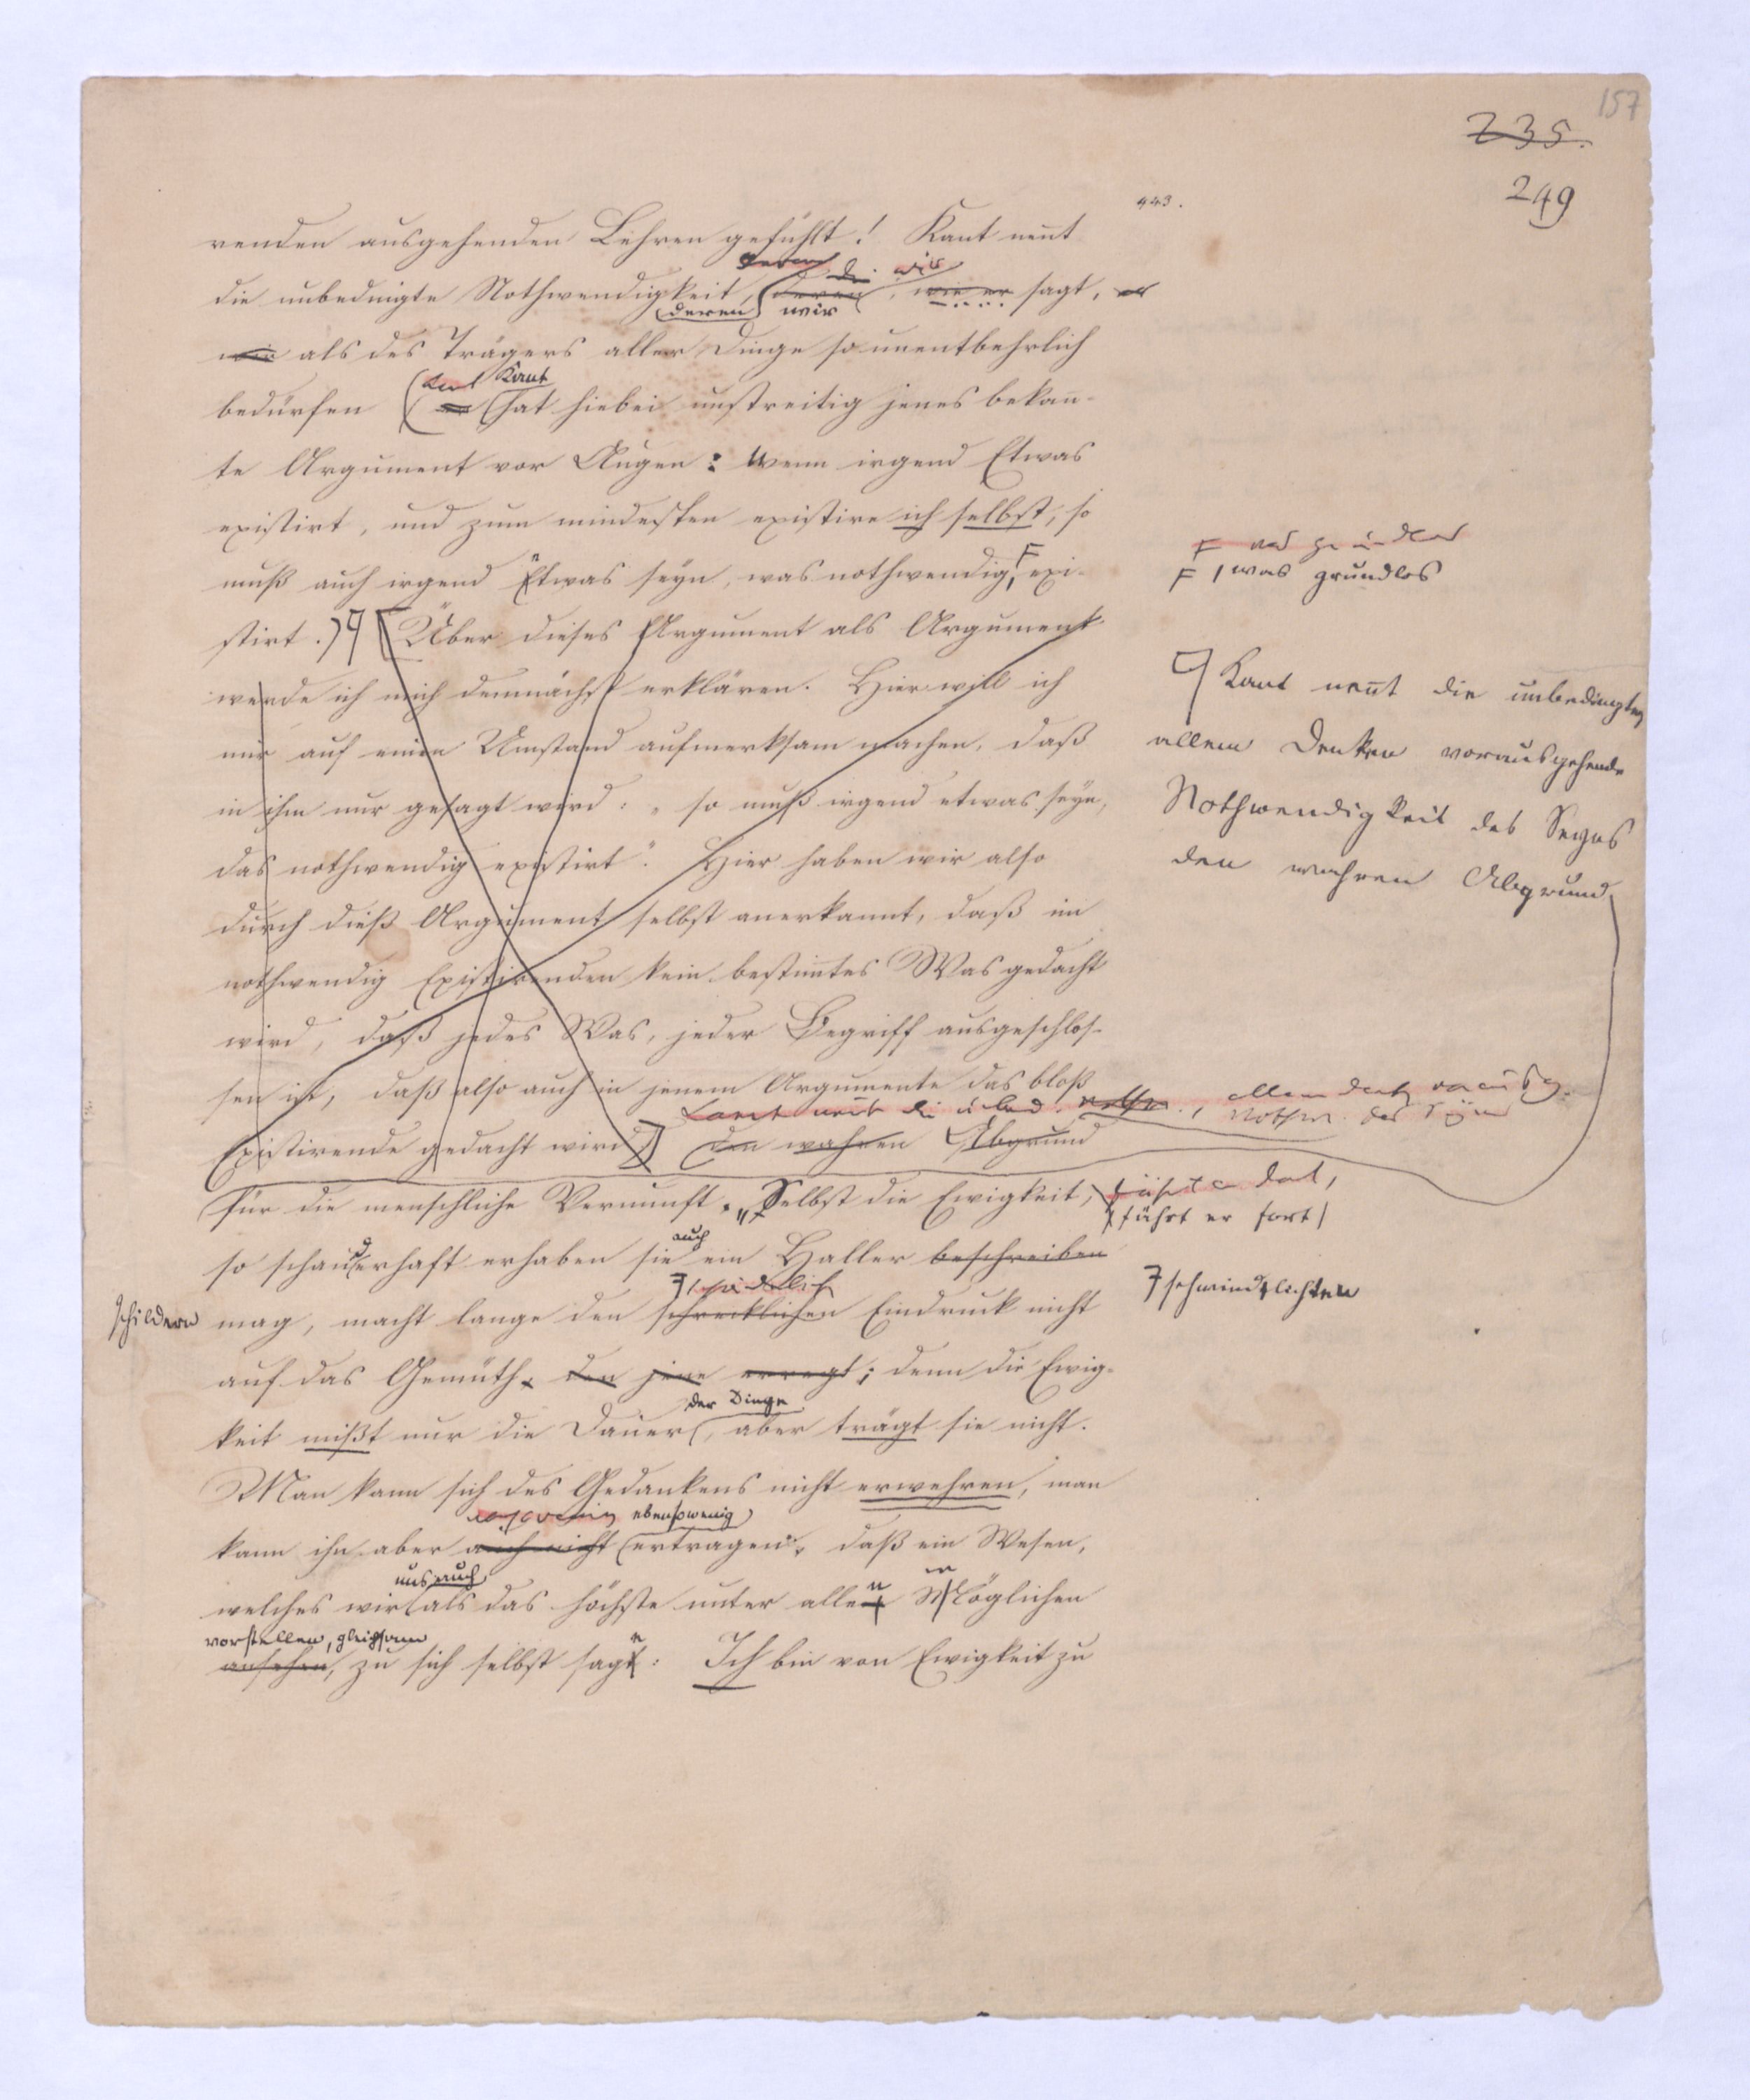 157
235.
249
443.
renden ausgehenden Lehren gefühlt! Kant nennt
deren die wir
die unbedingte Nothwendigkeit, deren, wie er sagt, er
deren wir
wir als des Trägers aller Dinge so unentbehrlich
Kant Kant
bedürfen (er hat hiebei unstreitig jenes bekann-
te Argument vor Augen: wenn irgend Etwas
existirt, und zum mindesten existire ich selbst, so
muß auch irgend Etwas seyn, was nothwendig, F exi-
F was grundlos
F , was grundlos
stirt.) Über dieses Argument als Argument
werde ich mich demnächst erklären. Hier will ich
nur auf einen Umstand aufmerksam machen, daß
in ihm nur gesagt wird: „so muß irgend etwas seyn,
das nothwendig existirt“. Hier haben wir also
durch dieß Argument selbst anerkannt, daß im
nothwendig Existirenden kein bestimtes Was gedacht
wird, daß jedes Was, jeder Begriff ausgeschlos-
sen ist, daß also auch in jenem Argumente das bloß
Kant nennt die unbed. Nothw., allem Denk vorausg.
Nothw. des Seyns
Existirende gedacht wird] den wahren Abgrund
Kant nennt die unbedingte,
allem Denken vorausgehende
Nothwendigkeit des Seyns
den wahren Abgrund
für die menschliche Vernunft. „Selbst die Ewigkeit,
führt er fort,
(führt er fort)
so schauderhaft erhaben sie auch ein Haller beschreiben
schildern mag, macht lange den schrecklichen Eindruck nicht
schwindlich
schwindlichten
auf das Gemüth, den jene erregt; denn die Ewig-
keit mißt nur die Dauer der Dinge, aber trägt sie nicht.
Man kann sich des Gedankens nicht erwehren, man
ebensowenig
kann ihn aber auch nicht ertragen, daß ein Wesen,
uns auch
welches wir als das höchste unter allen Möglichen
vorstellen, gleichsam
ansehen, zu sich selbst sagt: Ich bin von Ewigkeit zu